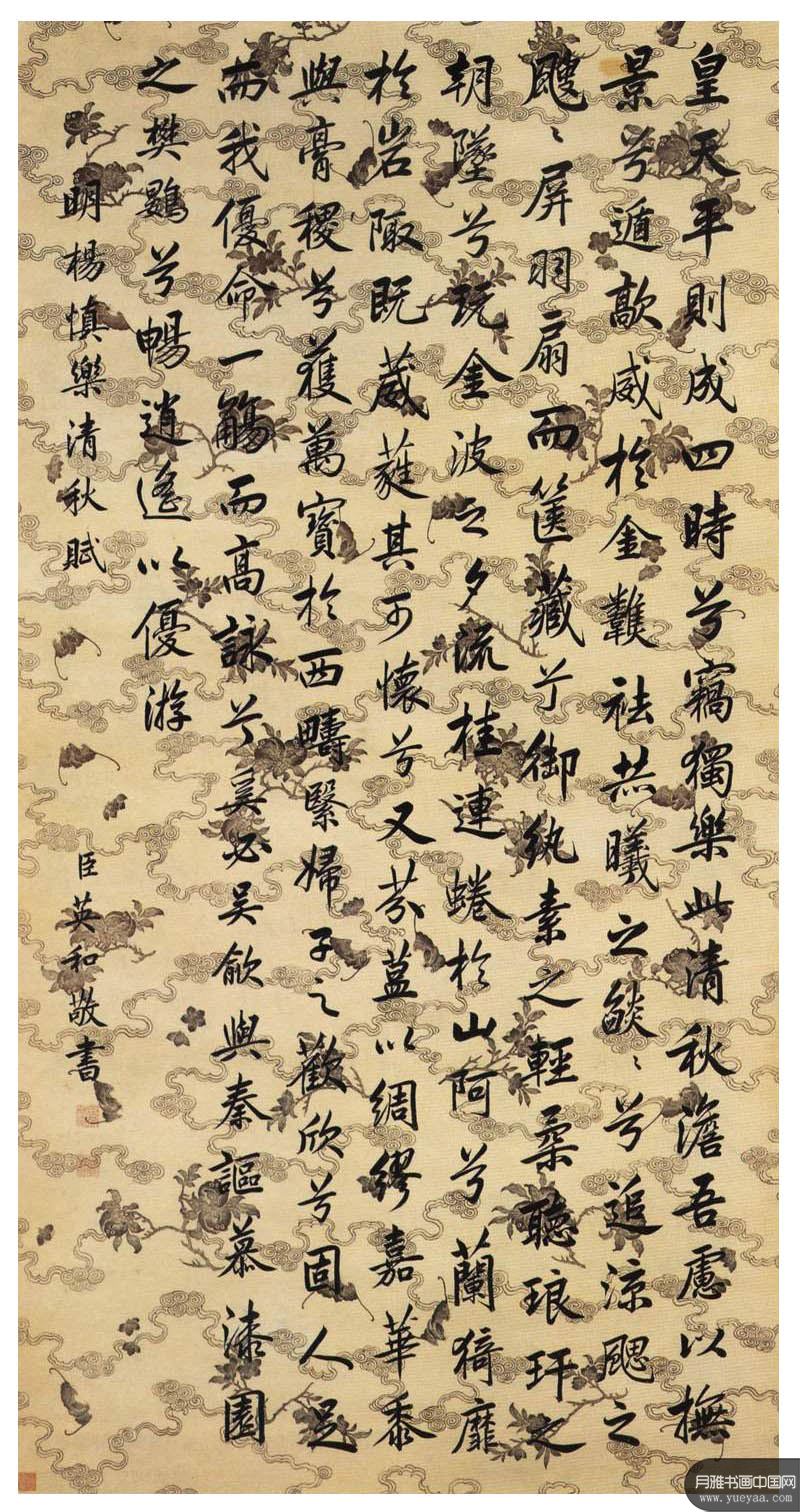 皇天平則成四時兮竊獨樂此清秋澹吾慮以撫
景兮遁歊威於金鷬祛共曦之燄〻兮追涼颸之
颼〻屏羽扇而篋藏兮御紈素之輕柔聽琅玕之
朝墜兮玩金波之夕流桂連蜷於山阿兮蘭猗靡
於岩陬既葳蕤其可懷兮又芬菹以綢繆嘉華黍
與膏稷兮獲萬寶於西疇緊婦子之歡欣兮固人足
而我優命一觴而高詠兮奚必吳歈與秦謳慕漆園
之樊鷃兮暢逍遙以優游
明楊慎樂清秋賦
臣英和敬書
月雅书画中国网
www.yueyaa.com